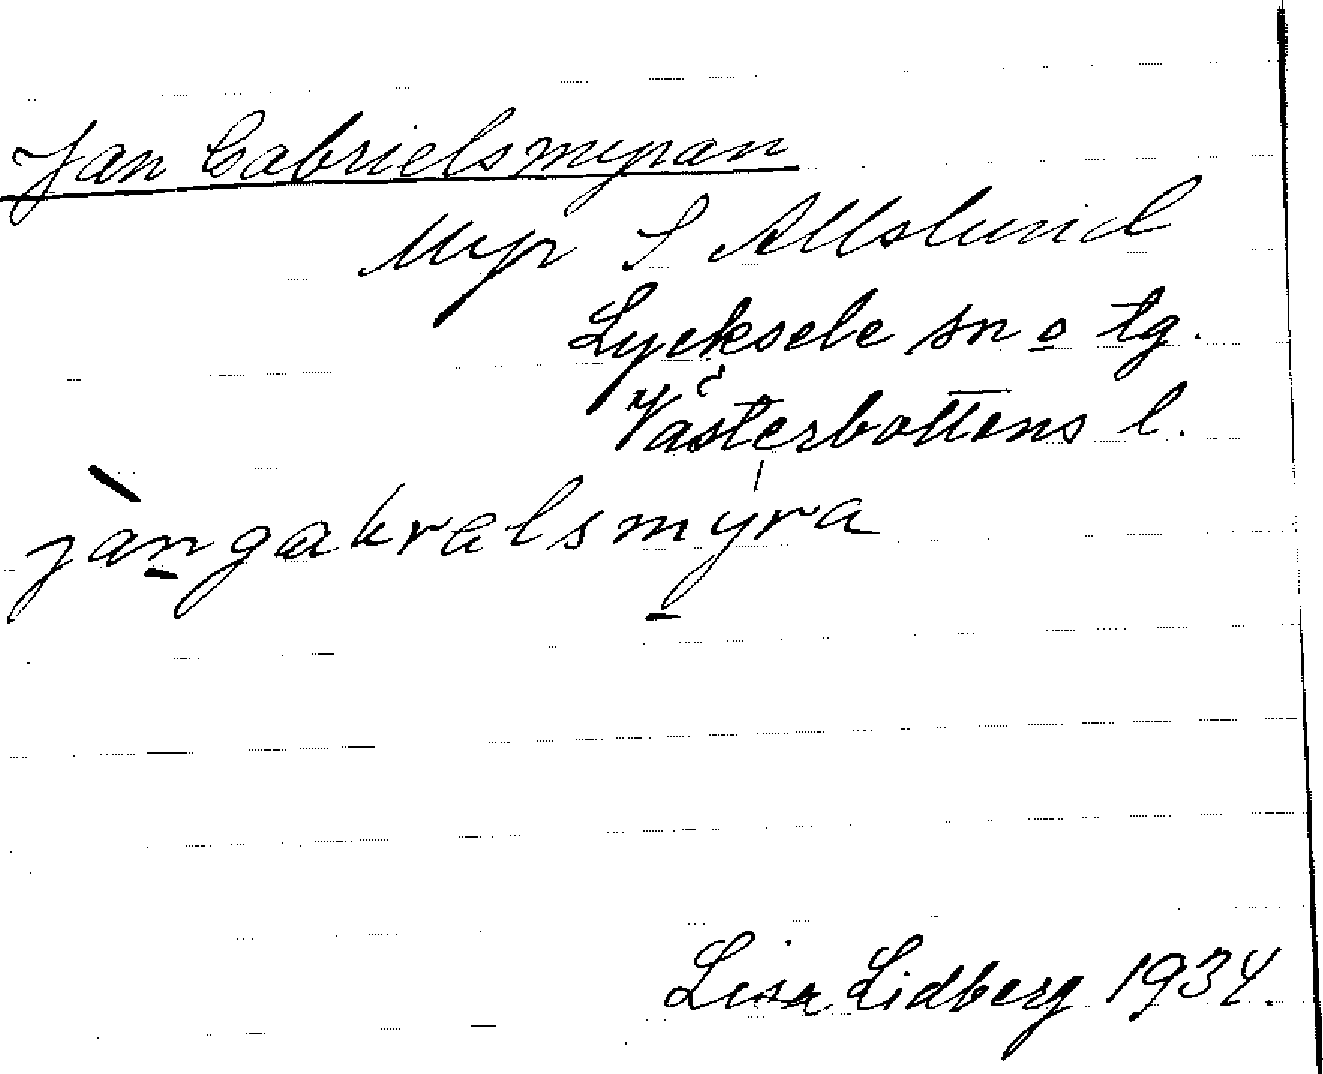 Jan Gabrielsmyran
Myr S Allslund
Lycksele sn o tg.
Västerbottens l.
jàngakralsmýra
Lisa Lidberg 1934.